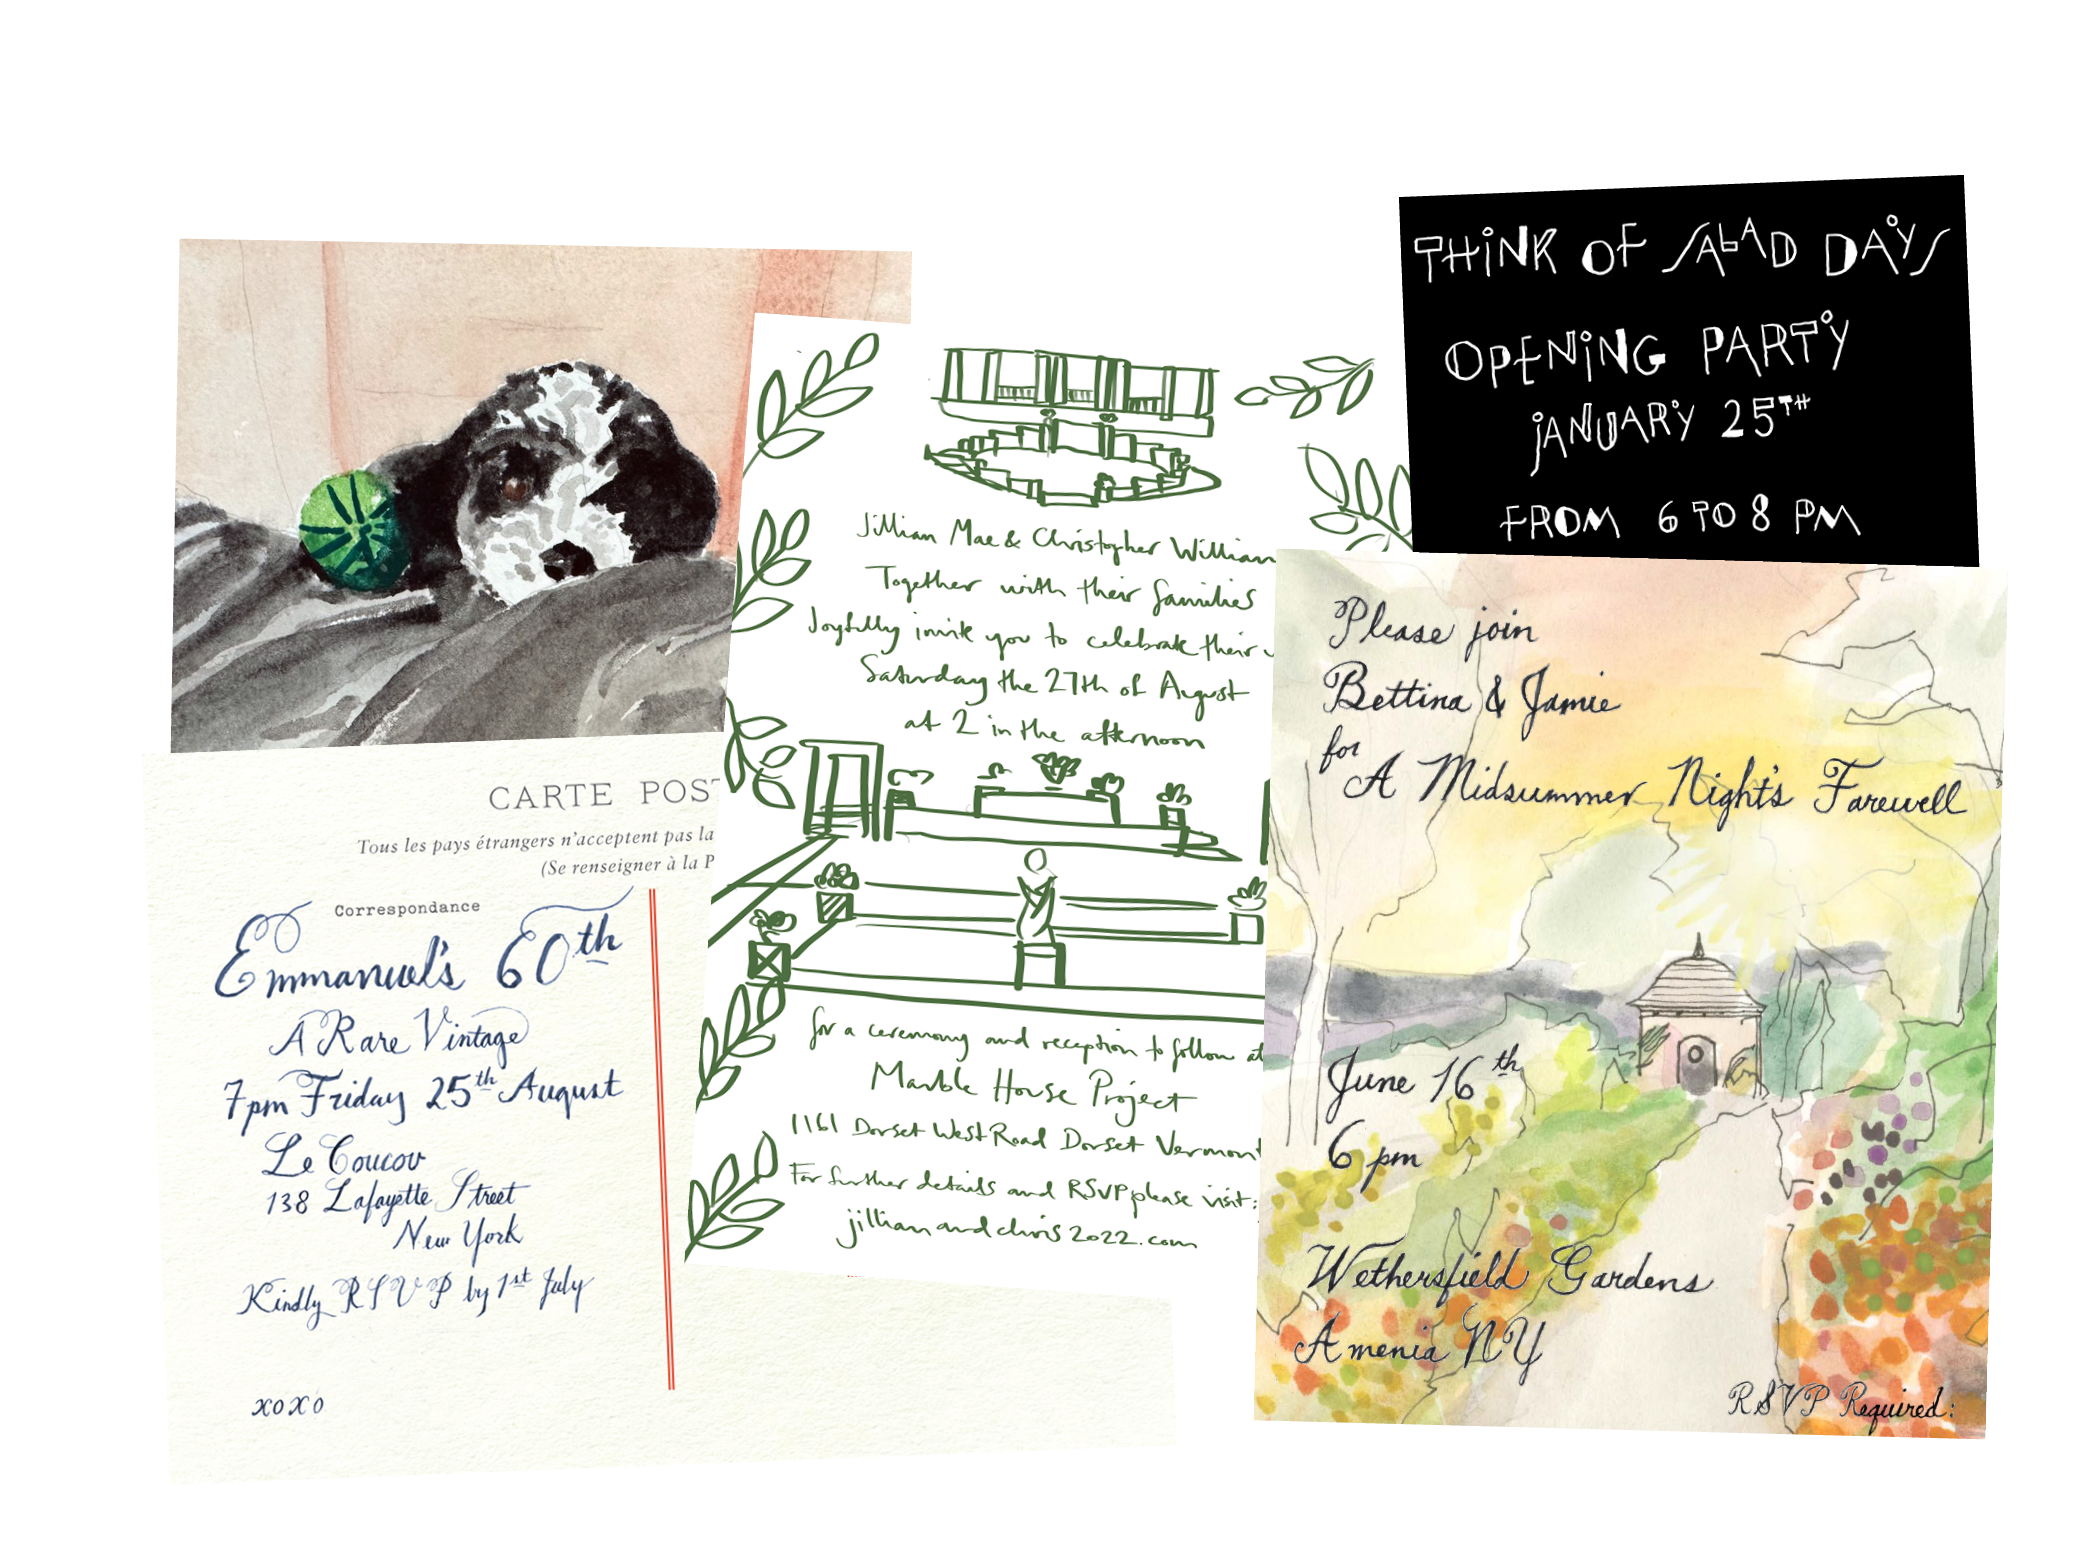 THINK OF SALAD DAYS
OPENING PARTY
JANUARY 25TH
FROM 6 TO 8 PM
Jillian Mae & Christopher William
Together with their families
Joyfully invite you to celebrate their
Saturday the 27th of August
at 2 in the afternoon
for a ceremony and reception to follow at
Marble House Project
1161 Dorset West Road Dorset Vermont
For further details and RSVP please visit:
jillianandchris2022.com
Please join
Bettina & Jamie
for
A Midsummer Night's Farewell
June 16th
6 pm
Wethersfield Gardens
Amenia NY
RSVP Required:
CARTE POST
Tous les pays étrangers n'acceptent pas la
(Se renseigner à la P
Correspondance
Emmanuel's 60th
A Rare Vintage
7pm Friday 25th August
Le Coucou
138 Lafayette Street
New York
Kindly RSVP by 1st July
xoxo